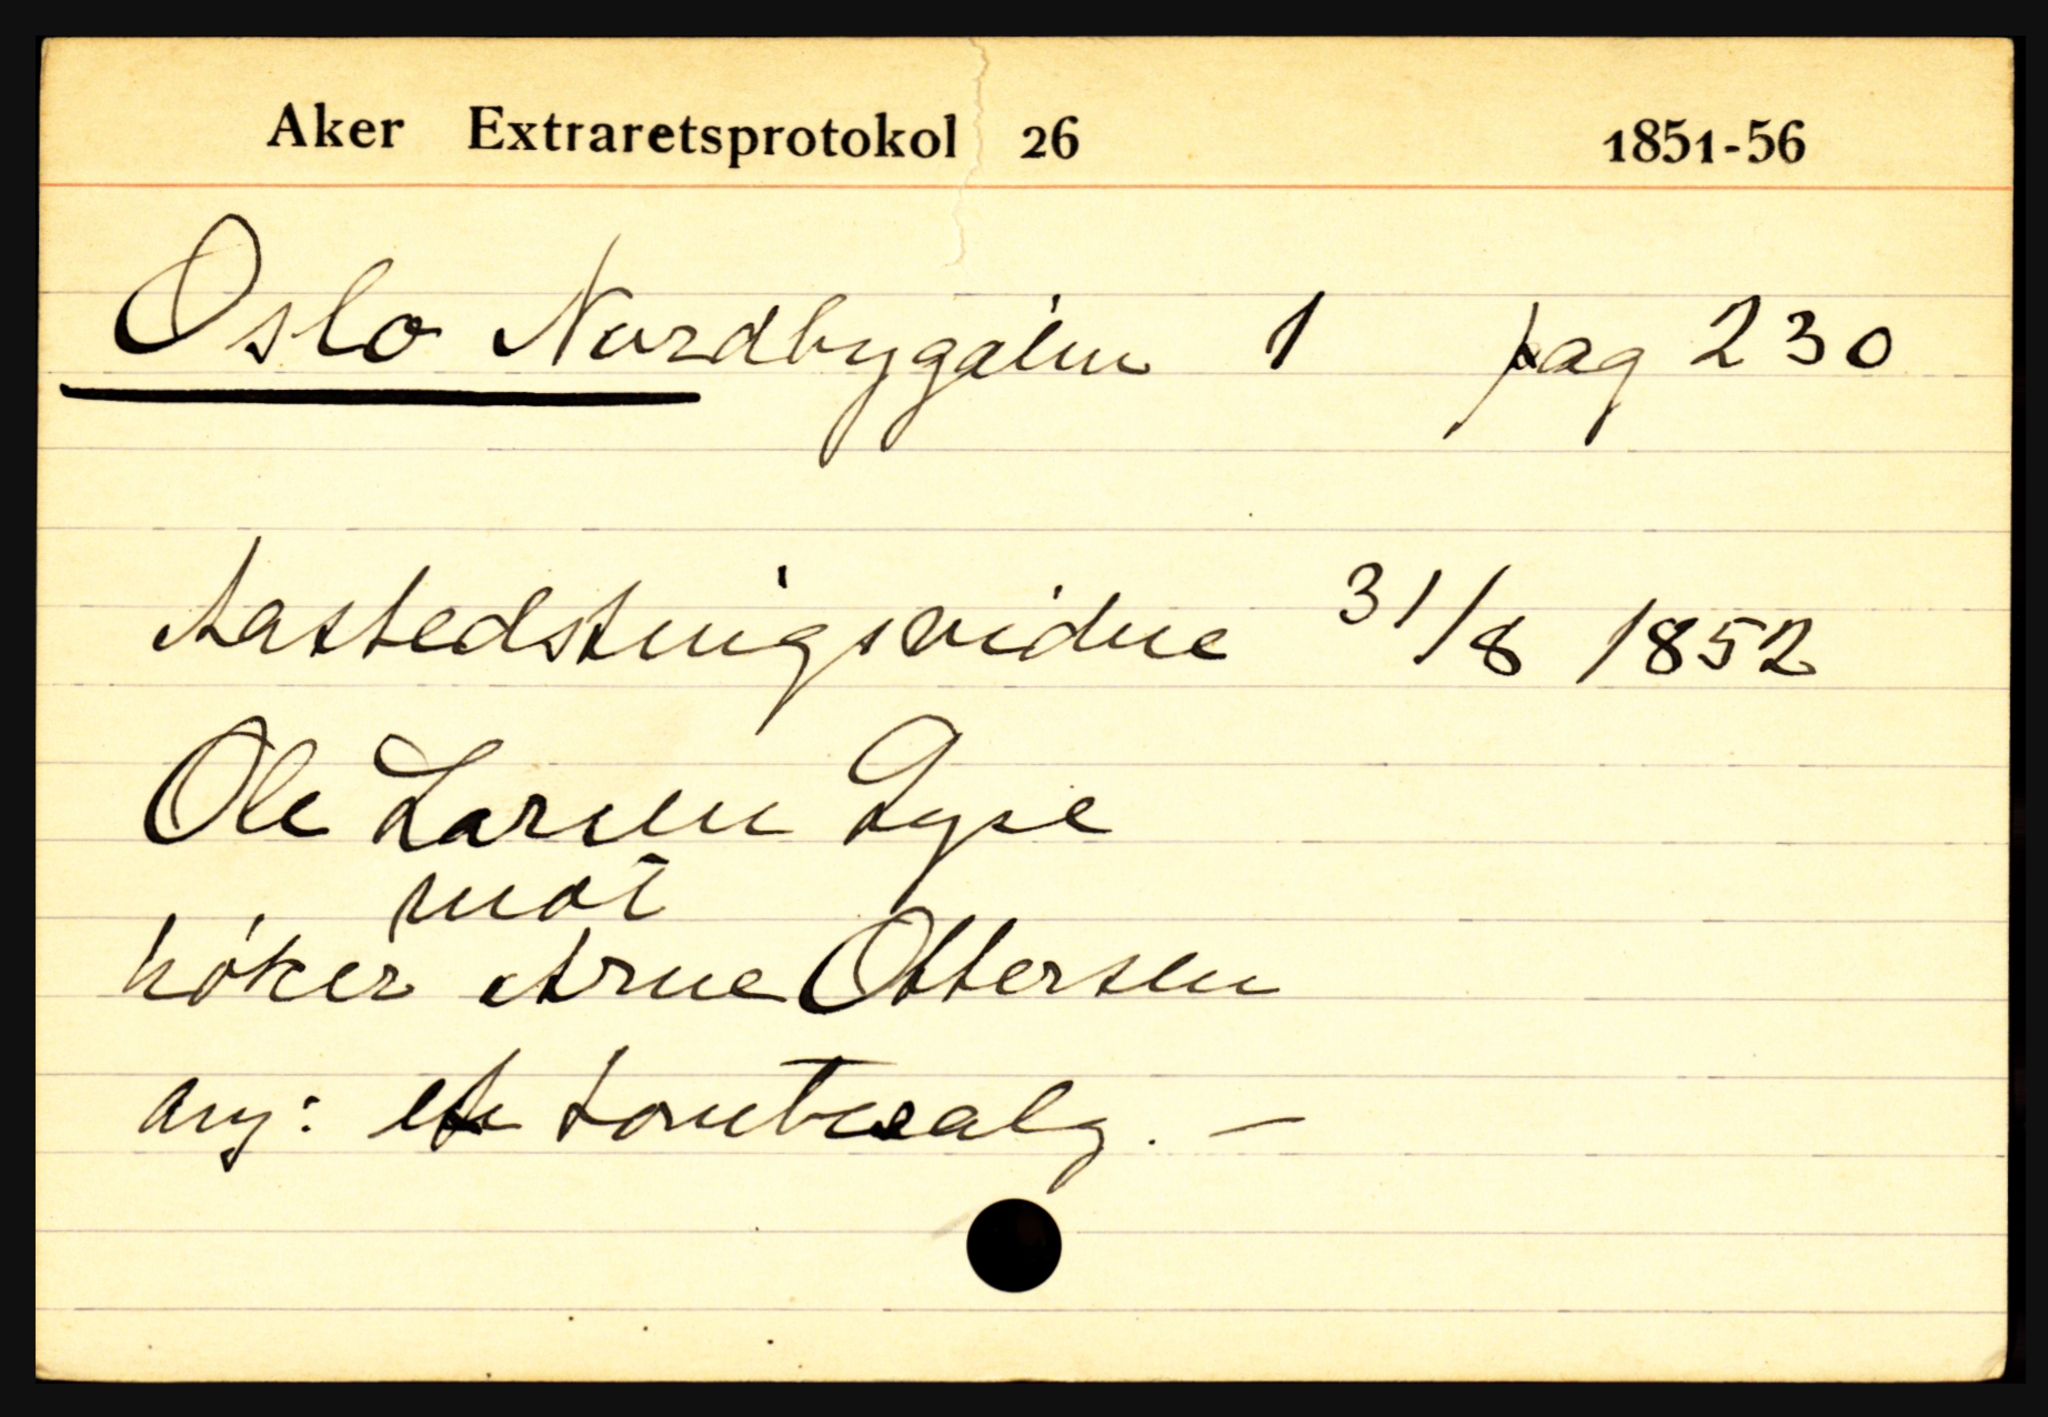 Aker Extraretsprotokol 26 1851-56
Oslo Nordbygaten 1 pag 230
Aastedstingsvidne 31/8 1852
Ole Larsen Lyse
mot
høker Arne Ottersen
ang: et tomtesalg. —